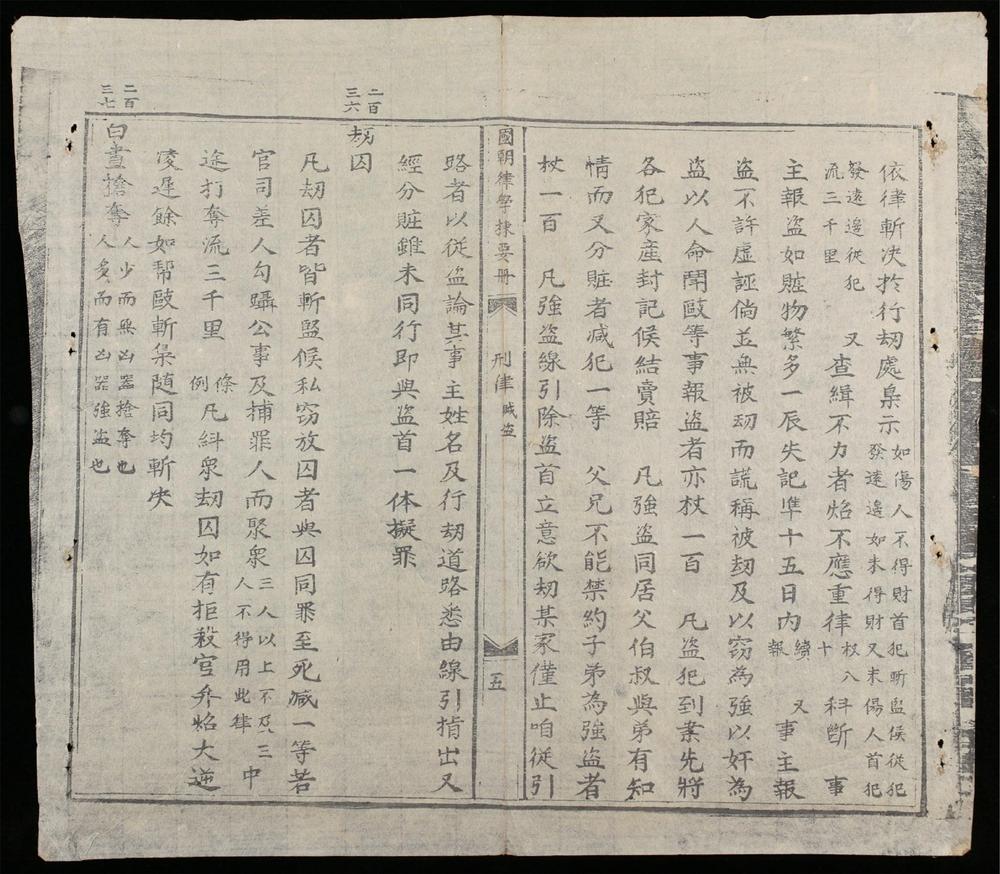 依律斬决於行刼處梟示如傷人不得財首犯斬監候從犯
發遠邊如未得財又未傷人首犯
發遠邊從犯
流三千里 又查緝不力者焰不應重律杖八十科斷 事
主報盗如賍物繁多一辰失記準十五日内續報 又事主報
盗不許虛誣倘並無被刼而謊稱被刼及以窃為強以奸為
盗以人命鬧毆等事報盗者亦杖一百 凡盗犯到案先將
各犯家産封記候結賣賠 凡強盗同居父伯叔與弟有知
情而又分賍者减犯一等 父兄不能禁約子弟為強盗者
杖一百 凡強盗線引除盗首立意欲刼某家僅止咱從引
國朝律學揀要冊 刑律 賊盗 五
路者以從盗論其事主姓名及行刼道路悉由線引指出又
經分賍雖未同行即與盗首一体擬罪
二百三六
刼囚
凡刼囚者皆斬監候私窃放囚者與囚同罪至死减一等若
官司差人勾躡公事及捕罪人而聚衆三人以上不及三人不得用此律中
途打奪流三千里 條例凡糾衆刼囚如有拒殺官弁焰大逆
凌遲餘如幇毆斬梟随同均斬决
二百三七
白晝搶奪人少而無凶器搶奪也
人多而有凶器強盗也